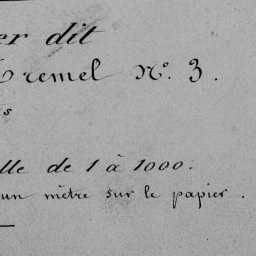 er dit
Tremel No. 3.
s
lle de 1 à 1000.
un mètre sur le papier.